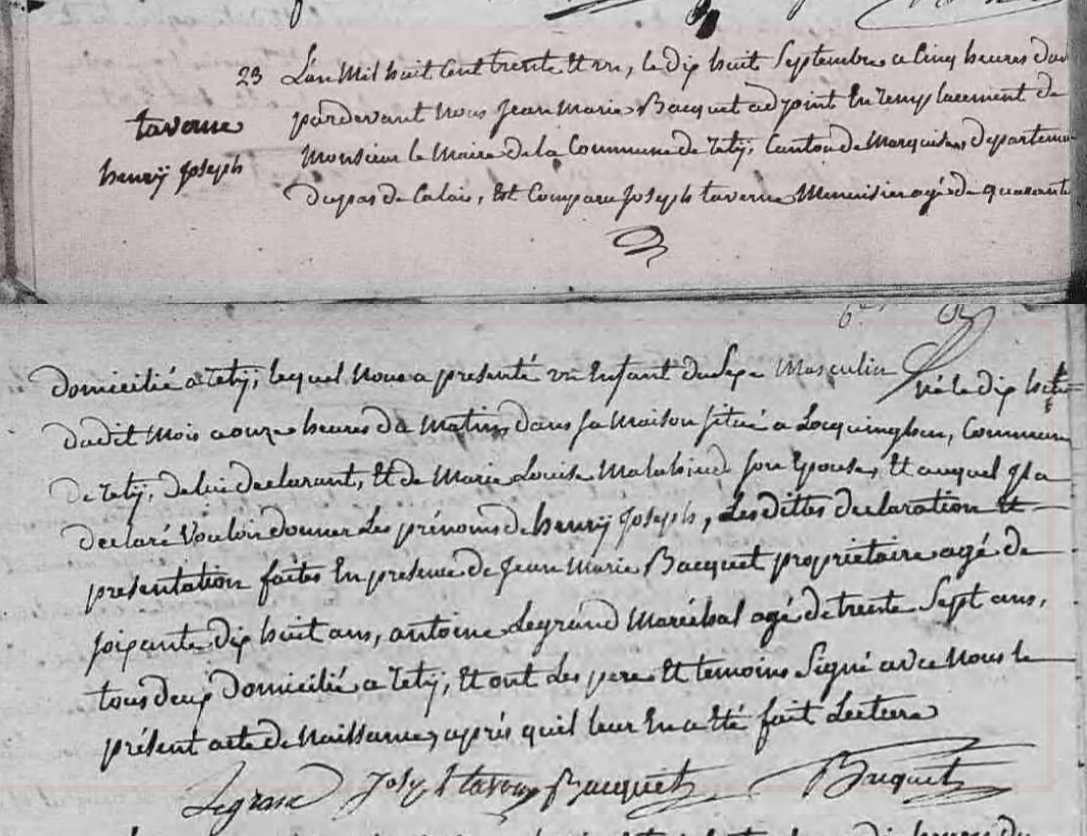 23 L'an Mil huit Cent trente et un, le dix huit Septembre a Cinq heures du
taverne
henrÿ Joseph
pardevant nous Jean Marie Bacquet adjoint En remplacement de
Monsieur le Maire de la Commune de Retÿ, Canton de Marquise, departement
du pas de Calais, Est Comparu Joseph taverne Menuisier agé de quarante
domicilié a Retÿ, lequel nous a presenté un Enfant du Sexe Masculin né le dix huit
dudit mois a onze heures du matin dans sa maison située a Locquinghen, Commune
de Retÿ, de lui declarant, Et de Marie Louise son Epouse, Et auquel il a
declaré Vouloir donner Les prénoms de henrÿ Joseph, Les dittes declaration Et
presentation faites En presence de Jean Marie Bacquet propriétaire agé de
soixante dix huit ans, antoine Legrand Maréchal agé de trente Sept ans,
tous deux domicilié a Retÿ, Et ont Les pere Et temoins Signé avec Nous le
présent acte de Naissance, après qu'il leur En a Eté fait Lecture
Legrand Joseph taverne Bacquet Bacquet